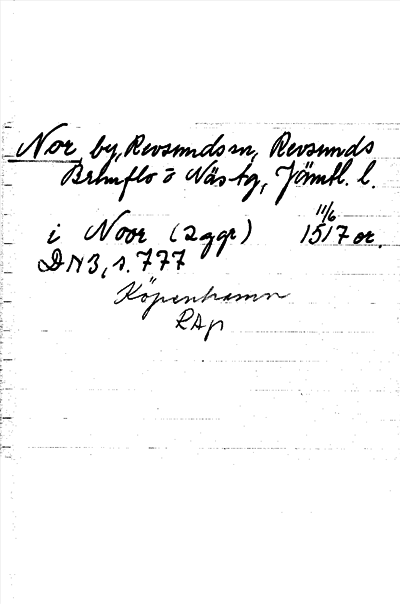 Nor, by, Revsunds sn, Revsunds
Brunflo o Näs tg, Jämtl. l.
i Noor (2 ggr) 11/6 1517 or.
DN 3, s. 777
Köpenhamn
RAp